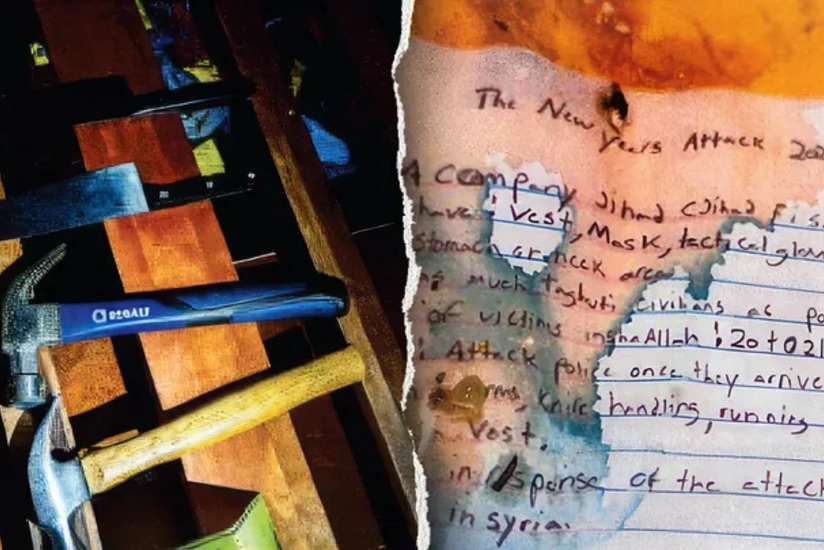 The New Years Attack 202
A company Jihad (Jihad Fis
have: Vest, Mask, tactical glov
Stomach or neck area
as much taghuti civilians as po
of victims inshaAllah: 20 to 21
Attack police once they arrive
knife handling, running
Vest,
in response of the attack
in syria.